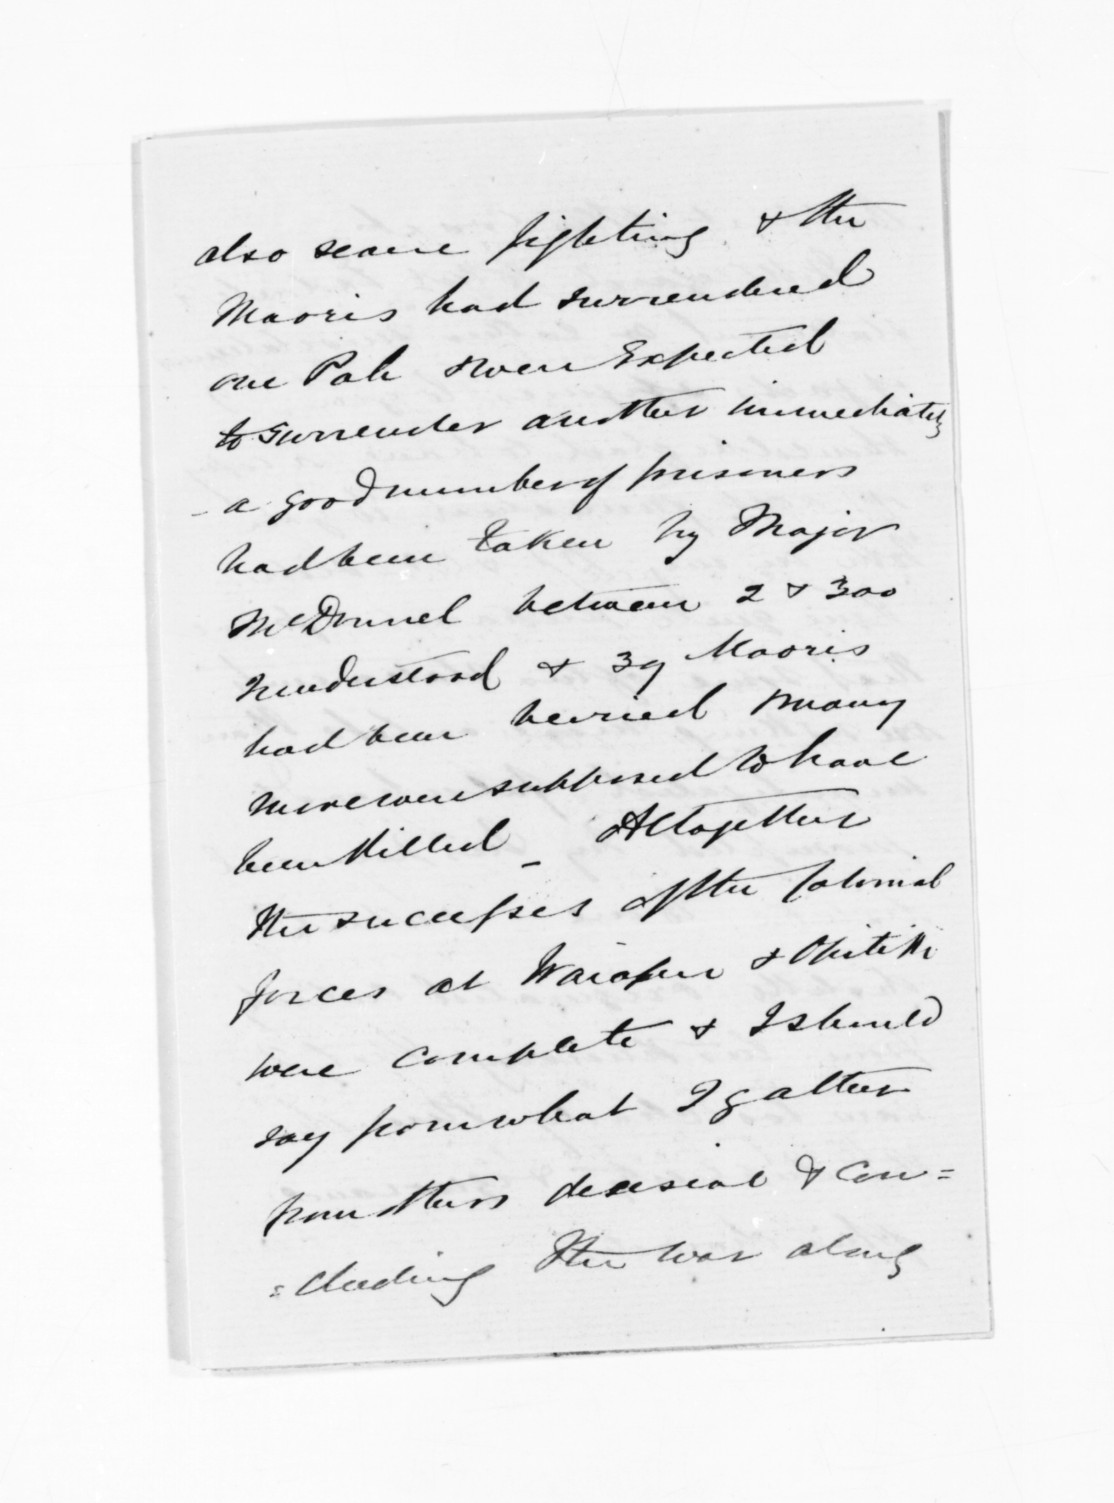 also severe fighting & the
Maoris had surrendered
one Pah & were Expected
to surrender another immediately
- a good number of prisoners
had been taken by Major
McDonnel between 2 & 300
I understood & 39 Maoris
had been burried many
more were supposed to have
been Killed _ Altogether
the successes of the Colonial
forces at Waiapu & Opitiki
were complete & I should
say from what I gather
from others decisial & con=
=cluding the war along